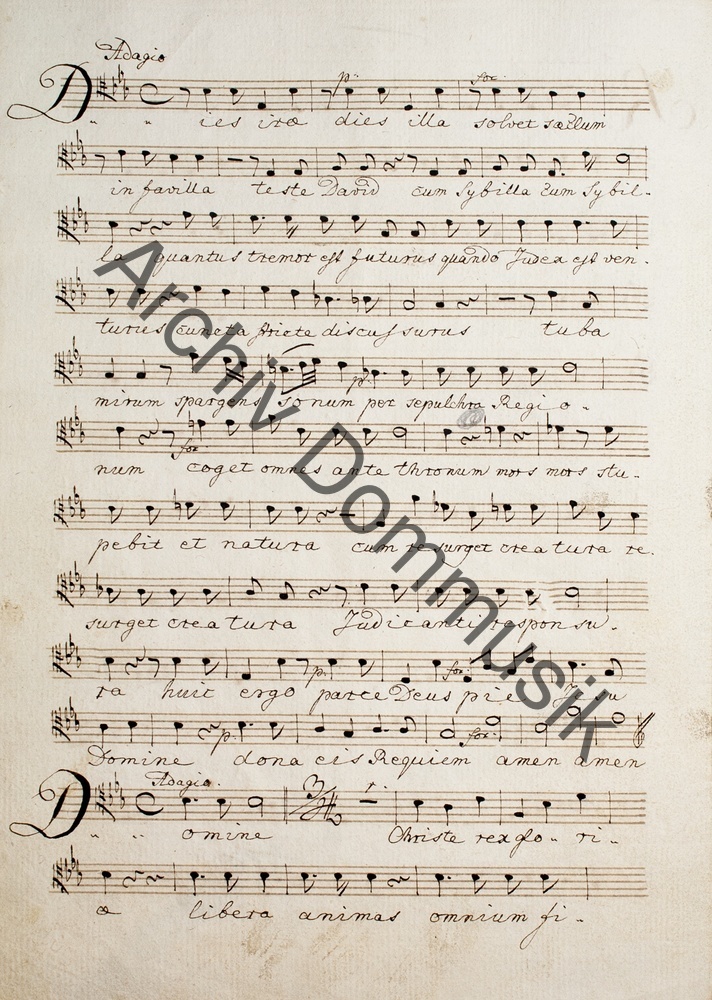 Adagio
p. for.
D " " ies iræ dies illa solvet sæclum
in favilla teste David cum Sybilla cum Sybil-
la quantus tremor est futurus quando Judex est ven-
turus cuncta stricte discussurus tuba
p.
mirum spargens sonum per sepulchra Regio-
for
num coget omnes ante thronum mors mors stu-
pebit et natura cum resurget creatura re-
surget creatura Judicanti responsu-
p. for.
ra huic ergo parce Deus pie Jesu
p. for.
Domine dona eis Requiem amen amen
Adagio.
D " " omine Christe rex glo- ri-
æ libera animas omnium fi-
Archiv Dommusik